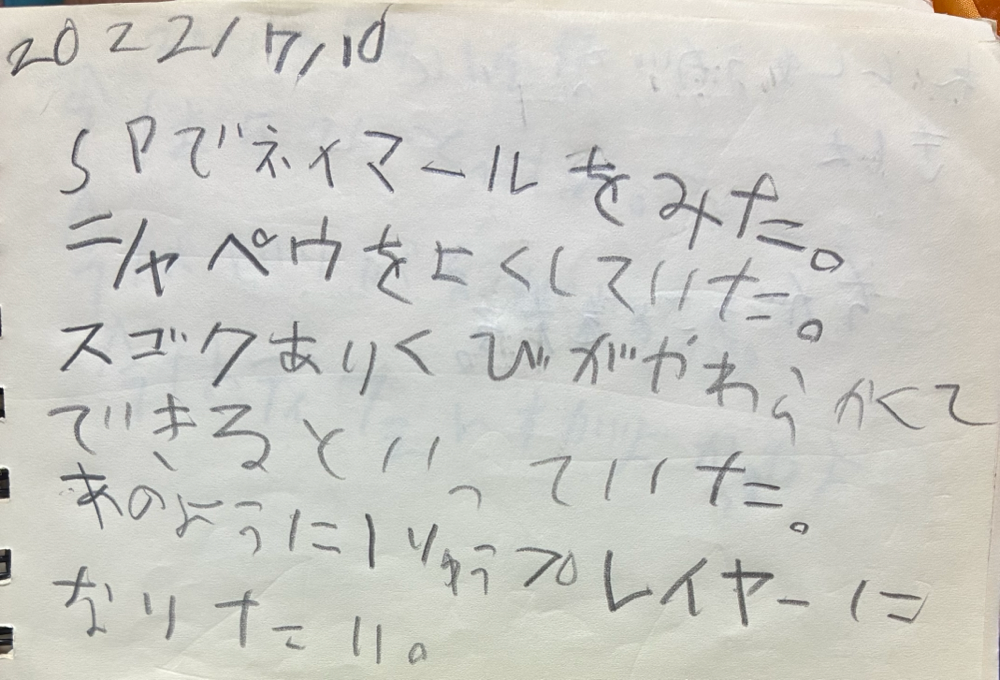 2022/7/10
SPでネイマールをみた。
シャペウをよくしていた。
スゴクあしくびがやわらかくて
できるといっていた。
あのように1りゅうプレイヤーに
なりたい。